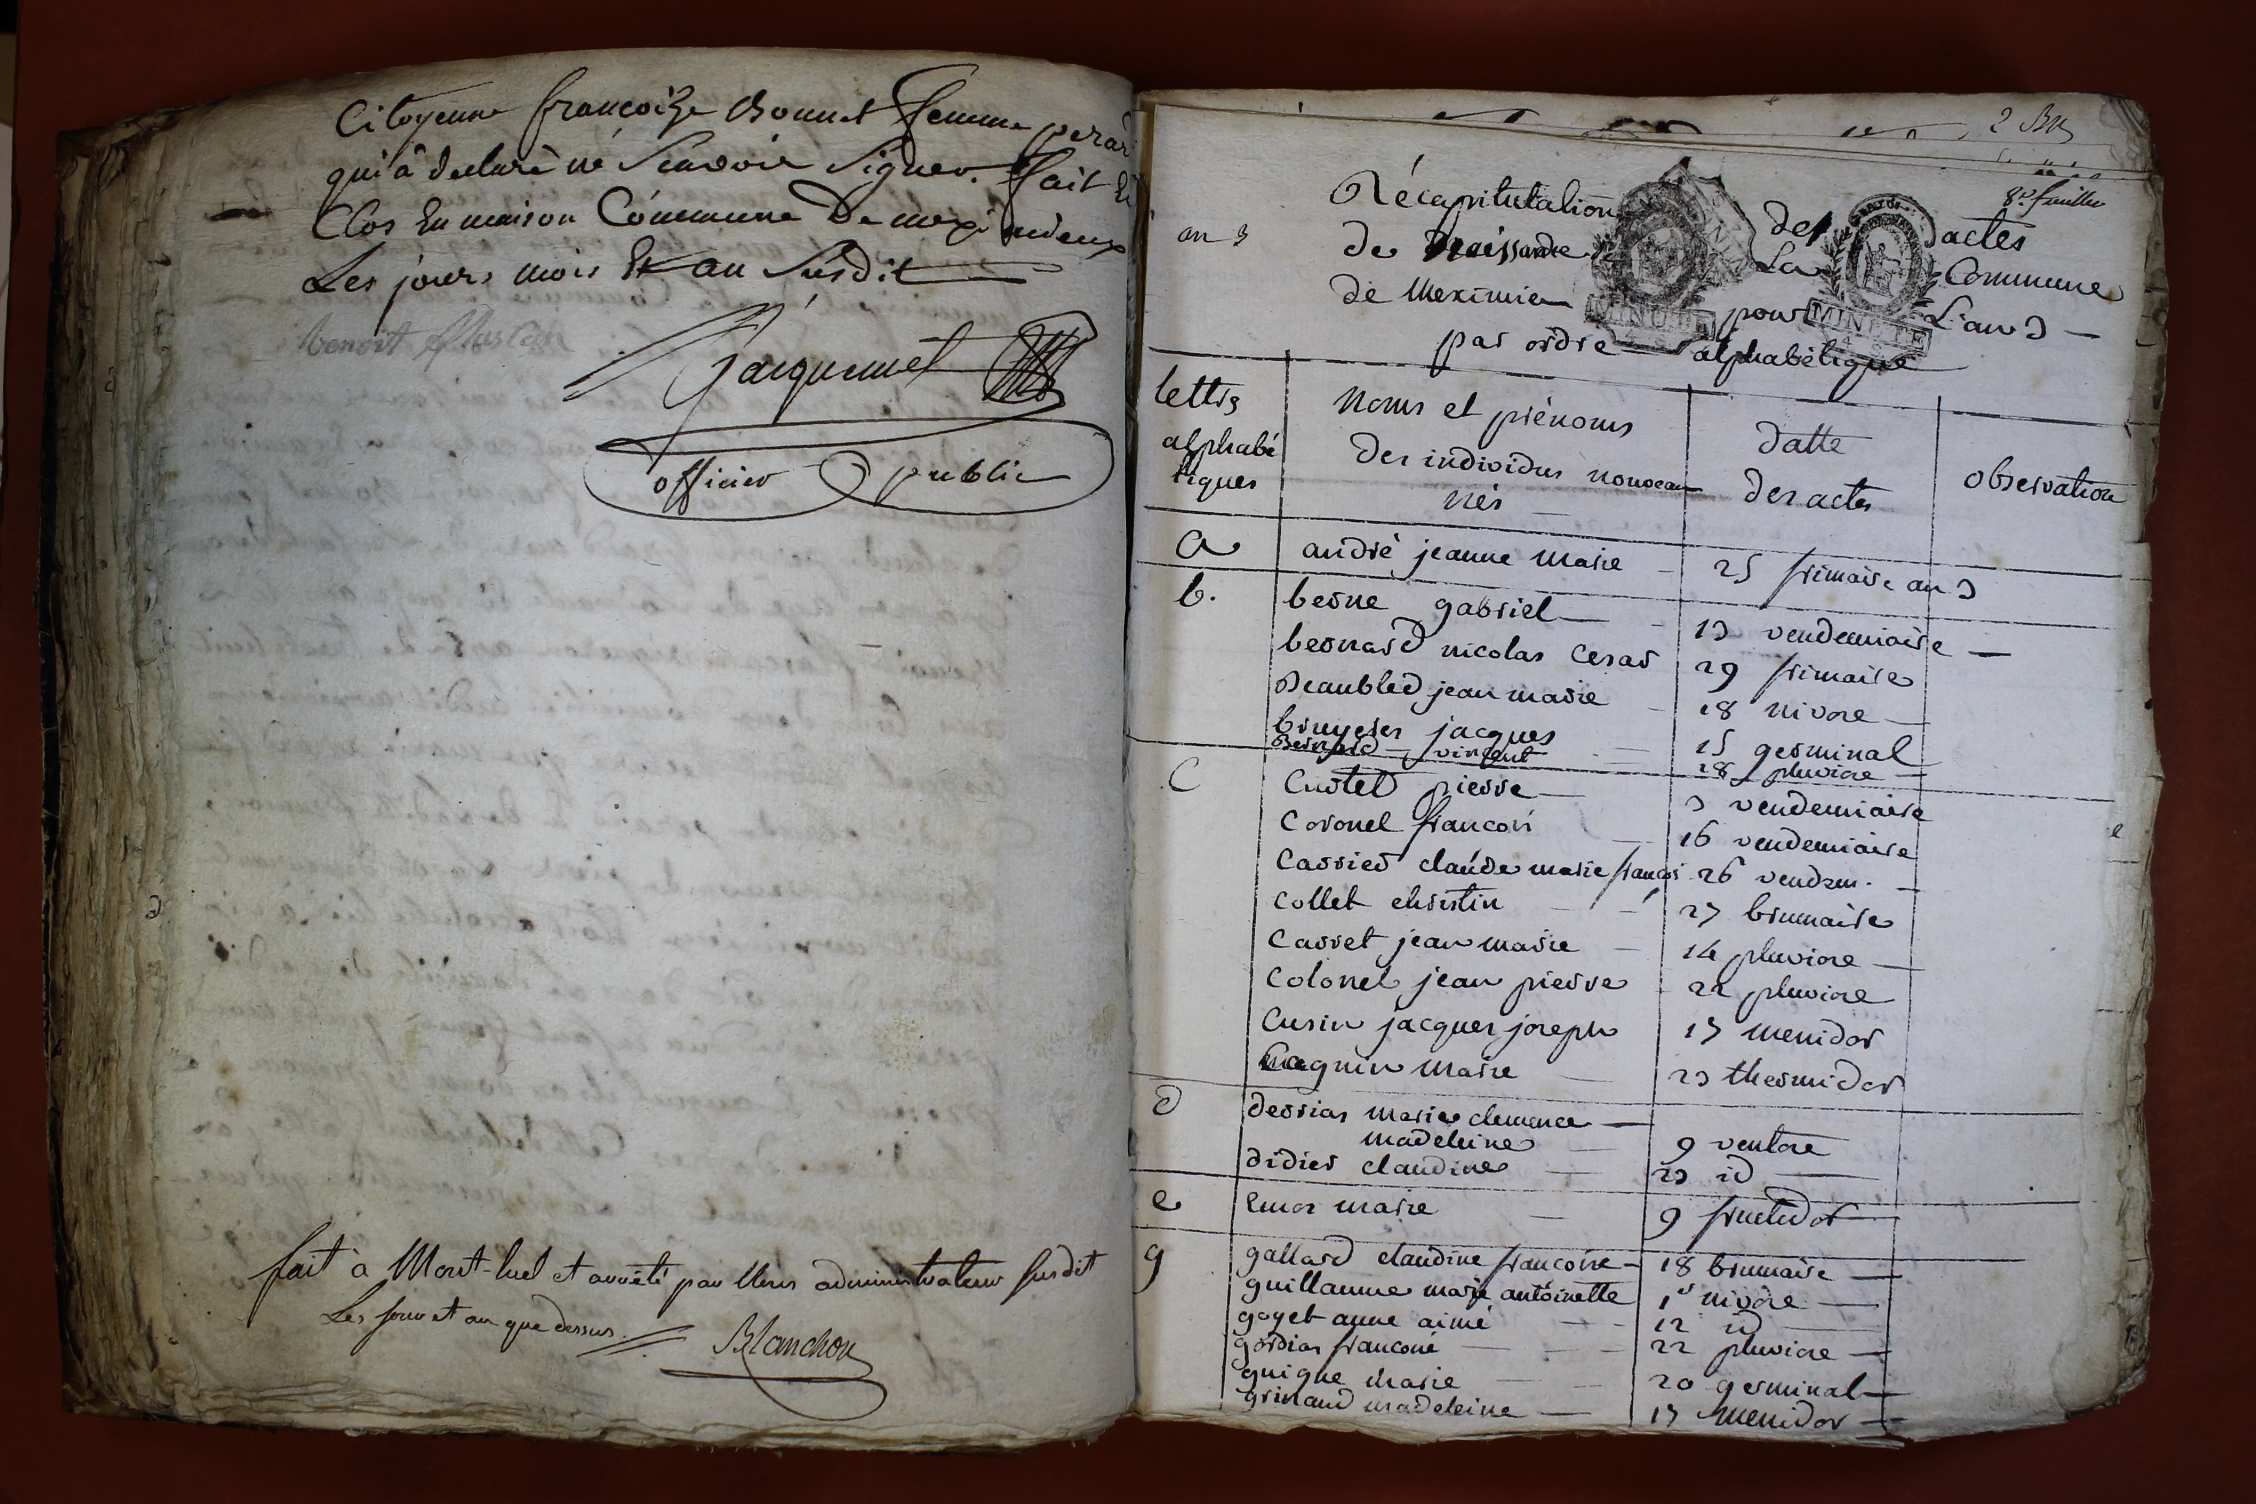 Citoyenne françoize Bonnet femme perar
qui à declaré ne Scavoir Signer. Fait Et
Clos En maison Commune De meximieux
Les jours mois Et an Susdit
benoit
Jacquemet
officier public
fait à Mont-luel et arrêté par Nous administrateur susdit
Les jour et an que dessus
Blanchon
2 Bre
8e feuillet
an 3
Récapitulation des actes
de Naissance de La Commune
de Meximieu pour L'an 3
par ordre alphabétique
MINUTE
MINUTE
lettres alphabétiques
Noms et prénoms des individus nouveau nés
datte des actes
observation
a andré jeanne Marie 25 frimaire an 3
b. berne gabriel 13 vendemiaire
bernard nicolas Cesar 29 frimaire
Beaubled jean marie 18 nivose
bruyeres jacques 15 germinal
Bernard vincent 28 pluviose
C Custel pierre 3 vendemiaire
Coronel francois 16 vendemiaire
Carrier claude marie françois 26 vendem.
Collet christin 27 brumaire
Carret jean marie 14 pluviose
Colonel jean pierre 22 pluviose
Cusin jacques joseph 17 messidor
Cagnin Marie 23 thermidor
d derrias marie clemence
madeleine 9 ventose
didier claudine 23 id
e Emos marie 9 fructidor
g gallard claudine francoise 18 brumaire
guillaume marie antoinette 1er nivose
goyet anne aimé 12 id
gordias francoise 22 pluviose
guigue Marie 20 germinal
grinand madeleine 17 messidor